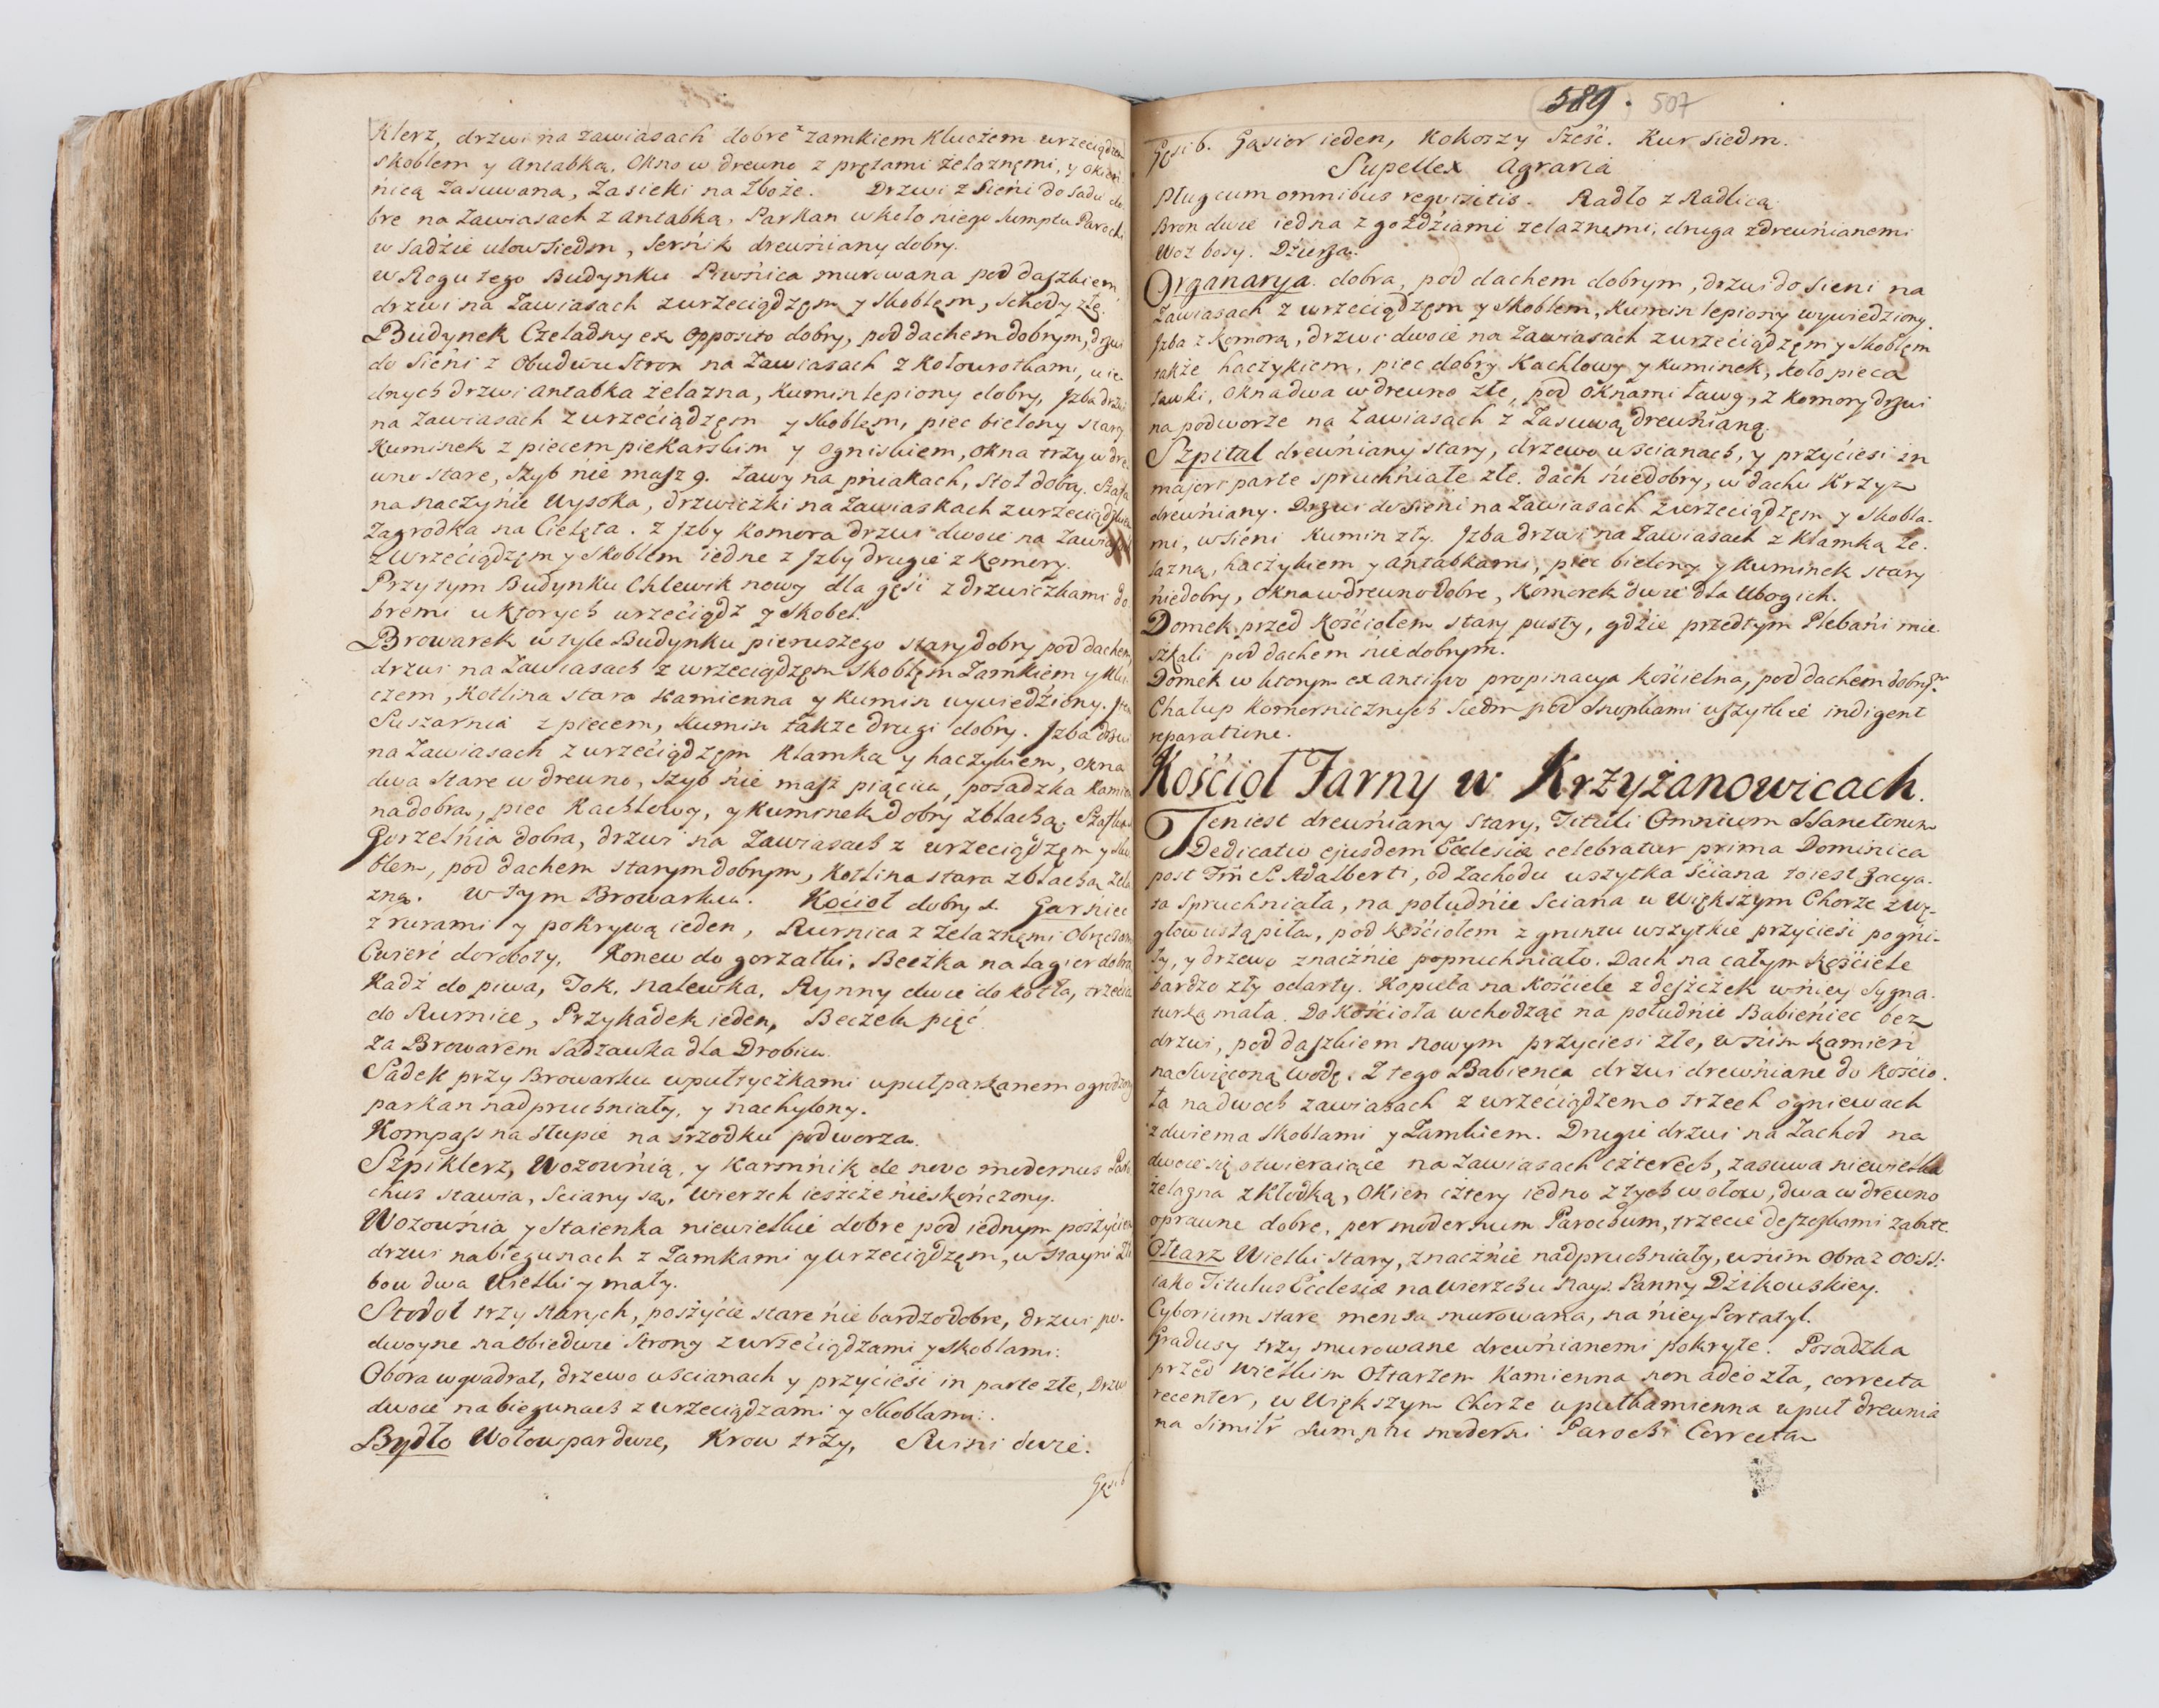 Klerz, drzwi na zawiasach dobre z zamkiem kluczem wrzeciądzem
skoblem y antabką, Okno w drewno z prętami żelaznęmi, y okien
nicą zasuwana, zasieki na zboże. Drzwi z sieni do sadu do
bre na zawiasach z antabką, Parkan wkoło niego sumptu Parochi
w sadzie ulow siedm, sernik drewniany dobry.
w Rogu tego Budynku Piwnica murowana pod daszkiem
drzwi na zawiasach z wrzeciądzęm y skoblęm, schody złę.
Budynek Czeladny ex opposito dobry, pod dachem dobrym, drzwi
do sieni z obudwu stron na zawiasach z kołowrotkami, u ie
dnych drzwi antabka żelazna, kumin lepiony dobry, Jzba drzwi
na zawiasach z wrzeciądzęm y skoblęm, piec bielony stary
Kuminek z piecem piekarskim y ogniskiem, okna trzy w dre
wno stare, szyb nie masz 9. ławy na pniakach, stoł dobry. Szafa
na naczynie wysoka, drzwiczki na zawiaskach z wrzeciądzkiem
Zagrodka na Cielęta. z Jzby komora drzwi dwoie na zawiasach
z wrzeciądzęm y skoblem iedne z Jzby drugie z komory.
Przy tym Budynku Chlewik nowy dla gęsi z drzwiczkami do
bremi u ktorych wrzeciądz y skobel.
Browarek w tyle Budynku pierwszego stary dobry pod dachem
drzwi na zawiasach z wrzeciądzęm skoblęm zamkiem y klu
czem, kotlina stara kamienna y kumin wywiedziony.
Suszarnia z piecem, kumin także drugi dobry. Jzba drzwi
na zawiasach z wrzeciądzęm klamka y haczykiem, okna
dwa stare w drewno, szyb nie masz pięciu, posadzka kamien
na dobra, piec kachlowy, y kuminek dobry z blachą.
Gorzelnia dobra, drzwi na zawiasach z wrzeciądzęm y sko
blem, pod dachem starym dobrym, kotlina stara z blachą żela
zną. w tym Browarku. Kocioł dobry 1. Garniec
z rurami y pokrywą ieden, Rurnica z żelaznęmi obręczami
Cwierć do roboty. Konew do gorzałki, Beczka na lagier dobra
Kadź do piwa, Tok, nalewka, Rynny dwie do kotła, trzecia
do Rurnice, Przykadek ieden, Beczek pięć
za Browarem sadzawka dla Drobiu.
Sadek przy Browarku wpuł tyczkami wpuł parkanem ogrodzony
parkan nadpruchniały, y nachylony.
Kompass na słupie na srzodku podworza.
Szpiklerz, Wozownią, y Karmnik de novo modernus Paro
chus stawia, sciany są, wierzch ieszcze nieskończony.
Wozownia y Staienka niewielkie dobre pod iednym poszyciem
drzwi na biegunach z zamkami y wrzeciądzęm, w stayni żło
bow dwa wielki y mały.
Stodoł trzy starych, poszycie stare nie bardzo dobre, drzwi po-
dwoyne na obiedwie strony z wrzeciądzami y skoblami.
Obora w quadrat, drzewo w scianach y przyciesi in parte złe, Drzwi
dwoie na biegunach z wrzeciądzami y skoblami.
Bydło Wołow par dwie, Krow trzy, Swini dwie.
Gęsi 6
589. 507
Gęsi 6. Gąsior ieden, kokoszy sześć. Kur siedm.
Supellex Agraria
Pług cum omnibus requizitis. Radło z Radlicą.
Bron dwie iedna z goździami zelaznęmi, druga z drewnianemi
Woz bosy.
Organarya dobra, pod dachem dobrym, drzwi do sieni na
zawiasach z wrzeciądzęm y skoblem, kumin lepiony wywiedziony.
Jzba z komorą, drzwi dwoie na zawiasach z wrzeciądzęm y skoblęm
także haczykiem, piec dobry kachlowy y kuminek, koło pieca
ławki, okna dwa w drewno złe, pod oknami ława, z komory drzwi
na podworze na zawiasach z zasuwą drewnianą.
Szpital drewniany stary, drzewo w scianach, y przyciesi in
majori parte spruchniałe złe. dach niedobry, w dachu krzyz
drewniany. Drzwi do sieni na zawiasach z wrzeciądzęm y skobla-
mi, w sieni kumin zły. Jzba drzwi na zawiasach z klamką że-
lazną, haczykiem y antabkami, piec bielony y kuminek stary
niedobry, okna w drewno dobre, komorek dwie dla Ubogich.
Domek przed kościołem stary pusty, gdzie przedtym Plebani mie-
szkali pod dachem niedobrym.
Domek w ktorym ex antiquo propinacya kościelna, pod dachem dobrym.
Chałup komorniczych siedm pod snopkami wszytkie indigent
reparatione.
Kościoł Farny w Krzyżanowicach.
Ten iest drewniany stary, Tituli Omnium SSanctorum
Dedicatio ejusdem Ecclesiæ celebratur prima Dominica
post Fm S. Adalberti, od zachodu wszytka sciana to iest Facya-
ta spruchniała, na południe sciana w większym Chorze z wę-
głow ustąpiła, pod kościołem z gruntu wszytkie przyciesi pogni-
ły, y drzewo znacznie popruchniało. Dach na całym kościele
bardzo zły odarty. Kopuła na kościele z deszczek w niey sygna-
turka mała. Do kościoła wchodząc na południe Babieniec bez
drzwi, pod daszkiem nowym przyciesi złe, w nim kamień
na święconą wodę. Z tego Babienca drzwi drewniane do kościo-
ła na dwoch zawiasach z wrzeciądzem o trzech ogniewach
z dwiema skoblami y zamkiem. Drugie drzwi na zachod na
dwoie się otwieraiące na zawiasach czterech, zasuwa niewielka
żelazna z kłodką, Okien cztery iedno z tych w ołow, dwa w drewno
oprawne dobre, per modernum Parochum, trzecie deszczkami zabite.
Ołtarz Wielki stary, znacznie nadpruchniały, w nim obraz OO. SS.
iako Titulus Ecclesiæ na wierzchu Nays. Panny Dzikowskiey.
Cyborium stare mensa murowana, na niey Portatyl.
Gradusy trzy murowane drewnianemi pokryte. Posadzka
przed wielkim Ołtarzem kamienna non adeo zła, correcta
recenter, w Większym Chorze wpuł kamienna wpuł drewnia
na simili sumptu moderni Parochi Correcta